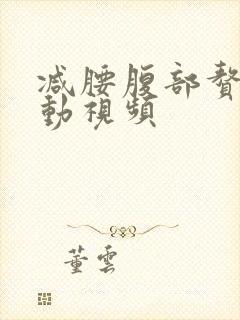 减腰腹部赘
動視頻
董雲